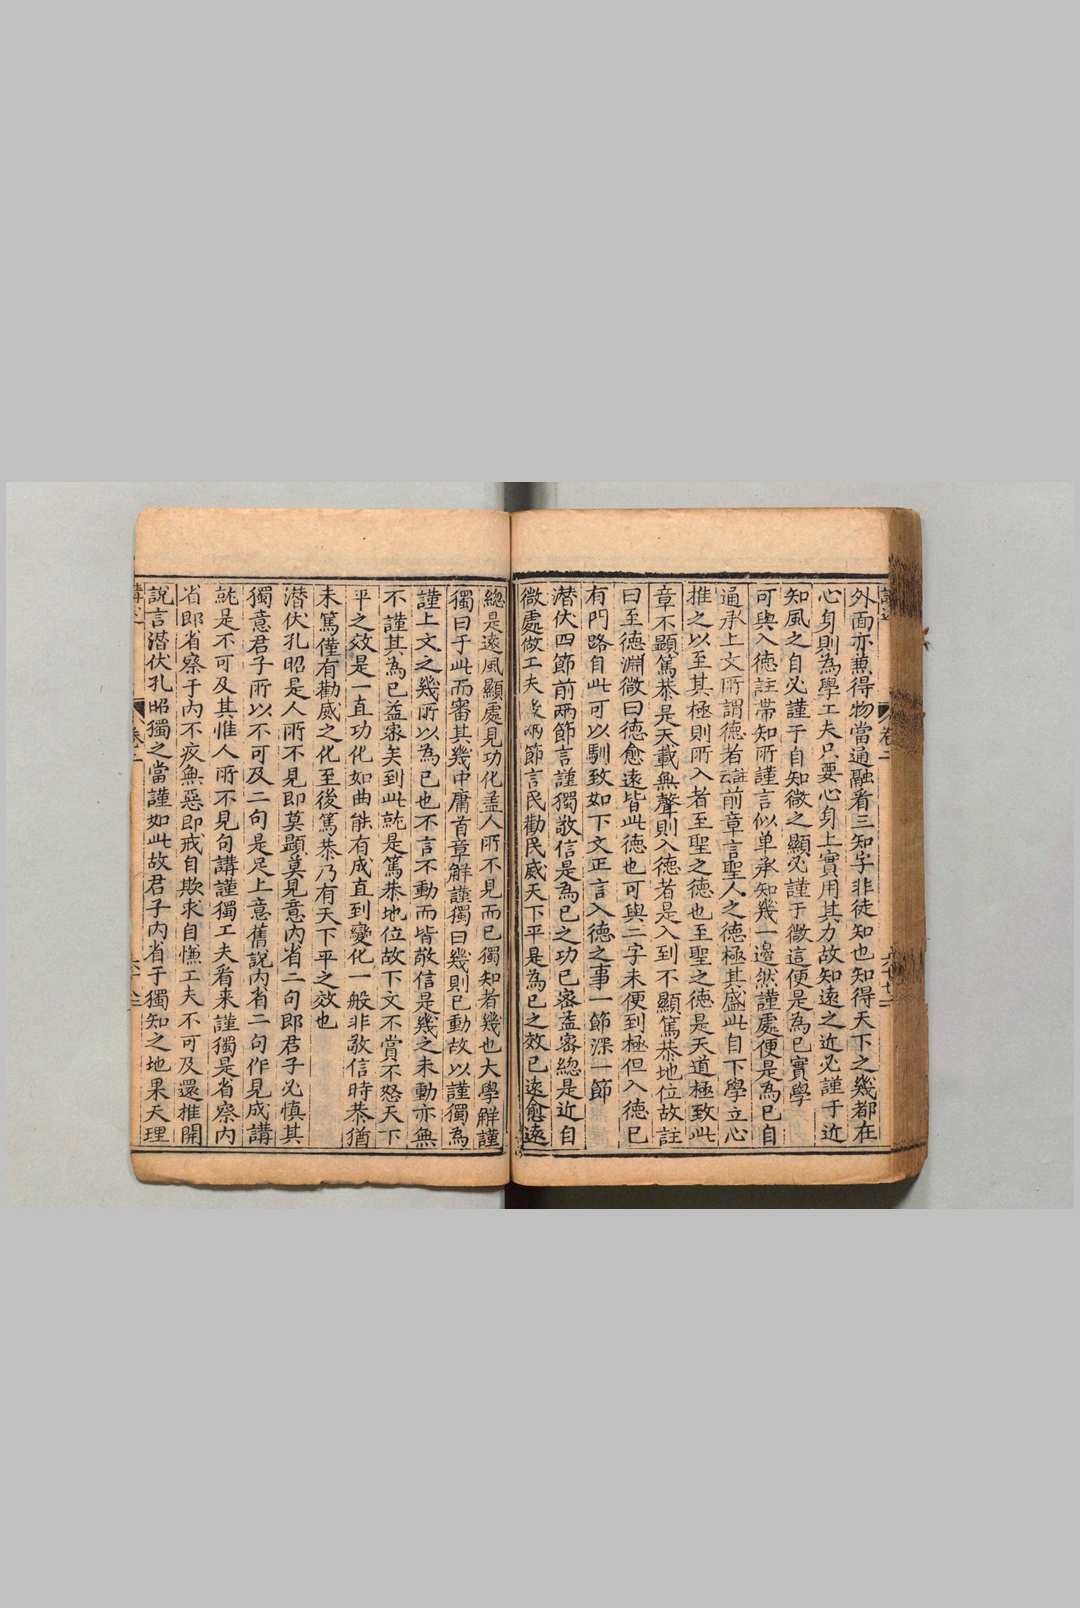 外面亦兼得物當通融看三知字非徒知也知得天下之幾都在
心身則為學工夫只要心身上實用其力故知遠之近必謹于近
知風之自必謹于自知微之顯必謹于微這便是為已實學
可與入德註帶知所謹言似单承知幾一邊然謹處便是為已自
通承上文所謂德者註云前章言聖人之德極其盛此自下學立心
推之以至其極則所入者至聖之德也至聖之德是天道極致此
章不顯篤恭是天載無聲則入德者是入到不顯篤恭地位故註
曰至德淵微曰德愈遠皆此德也可與二字未便到極但入德已
有門路自此可以馴致如下文正言入德之事一節深一節
潜伏四節前兩節言謹獨敬信是為已之功已密益密總是近自
微處做工夫後兩節言民勸民威天下平是為已之效已遠愈遠
總是遠風顯處見功化盖人所不見而已獨知者幾也大學解謹
獨曰于此而審其幾中庸首章解謹獨曰幾則已動故以謹獨為
謹上文之幾所以為已也不言不動而皆敬信是幾之未動亦無
不謹其為已益密矣到此就是篤恭地位故下文不賞不怒天下
平之效是一直功化如曲能有成直到變化一般非敬信時恭猶
未篤僅有勸威之化至後篤恭乃有天下平之效也
潜伏孔昭是人所不見即莫顯莫見意内省二句即君子必慎其
獨意君子所以不可及二句是足上意舊說内省二句作見成講
就是不可及其惟人所不見句講謹獨工夫看来謹獨是省察内
省即省察于内不疚無惡即戒自欺求自慊工夫不可及還推開
說言潜伏孔昭獨之當謹如此故君子内省于獨知之地果天理
卷二